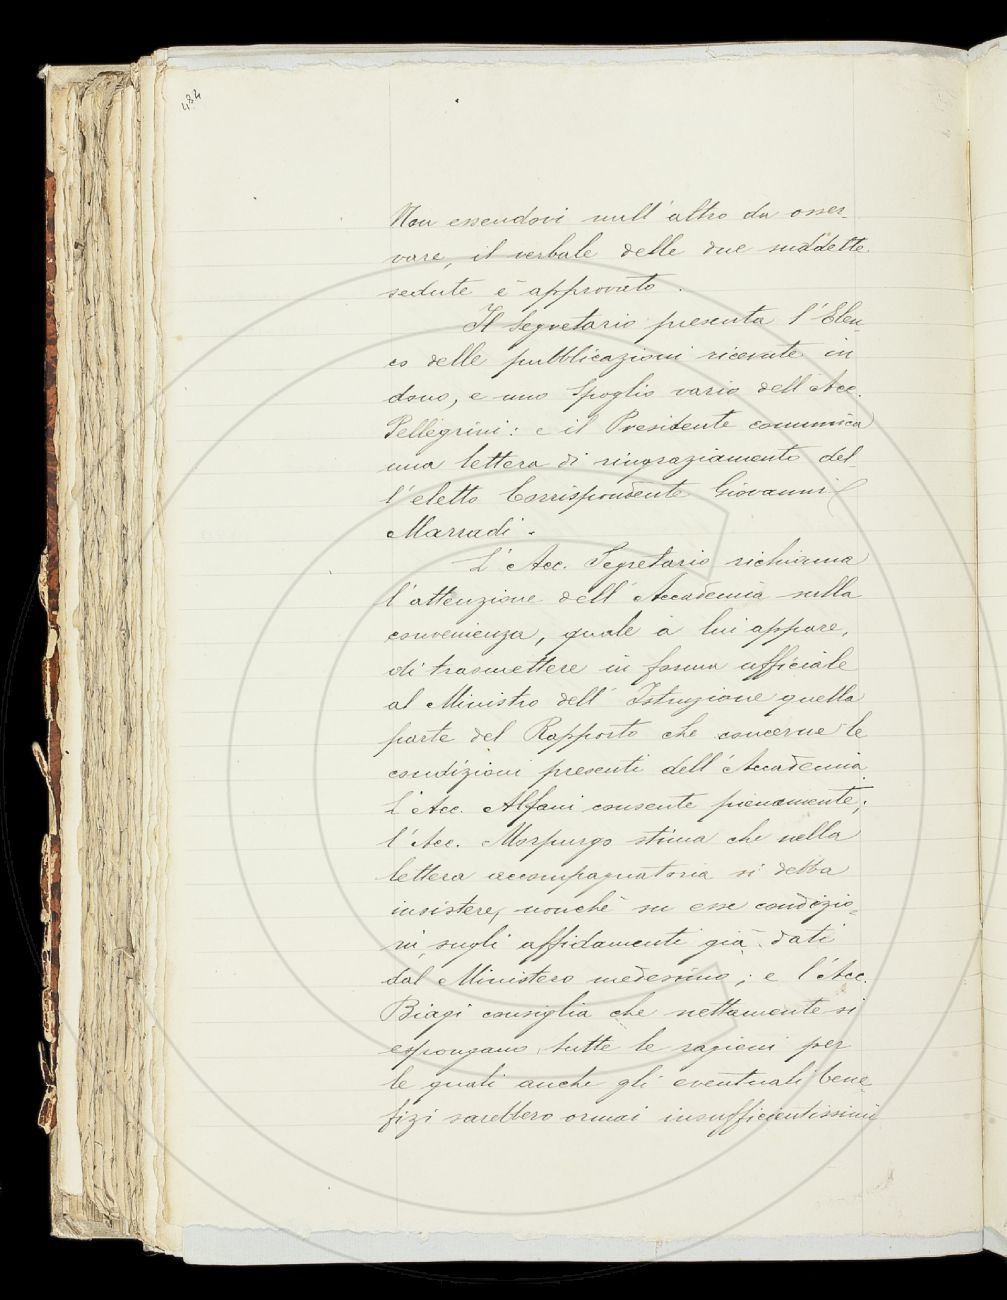 484
Non essendovi null'altro da osser-
vare, il verbale delle due suddette
sedute è approvato.
Il Segretario presenta l'Elen-
co delle pubblicazioni ricevute in
dono, e uno Spoglio vario dell'Acc.
Pellegrini: e il Presidente comunica
una lettera di ringraziamento del-
l'eletto Corrispondente Giovanni
Marradi.
L'Acc. Segretario richiama
l'attenzione dell'Accademia sulla
convenienza, quale a lui appare,
di trasmettere in forma ufficiale
al Ministro dell'Istruzione quella
parte del Rapporto che concerne le
condizioni presenti dell'Accademia.
L'Acc. Alfani consente pienamente;
l'Acc. Morpurgo stima che nella
lettera accompagnatoria si debba
insistere, nonchè su esse condizio-
ni, sugli affidamenti già dati
dal Ministero medesimo; e l'Acc.
Biagi consiglia che nettamente si
espongano tutte le ragioni per
le quali anche gli eventuali bene-
fizi sarebbero ormai insufficientissimi